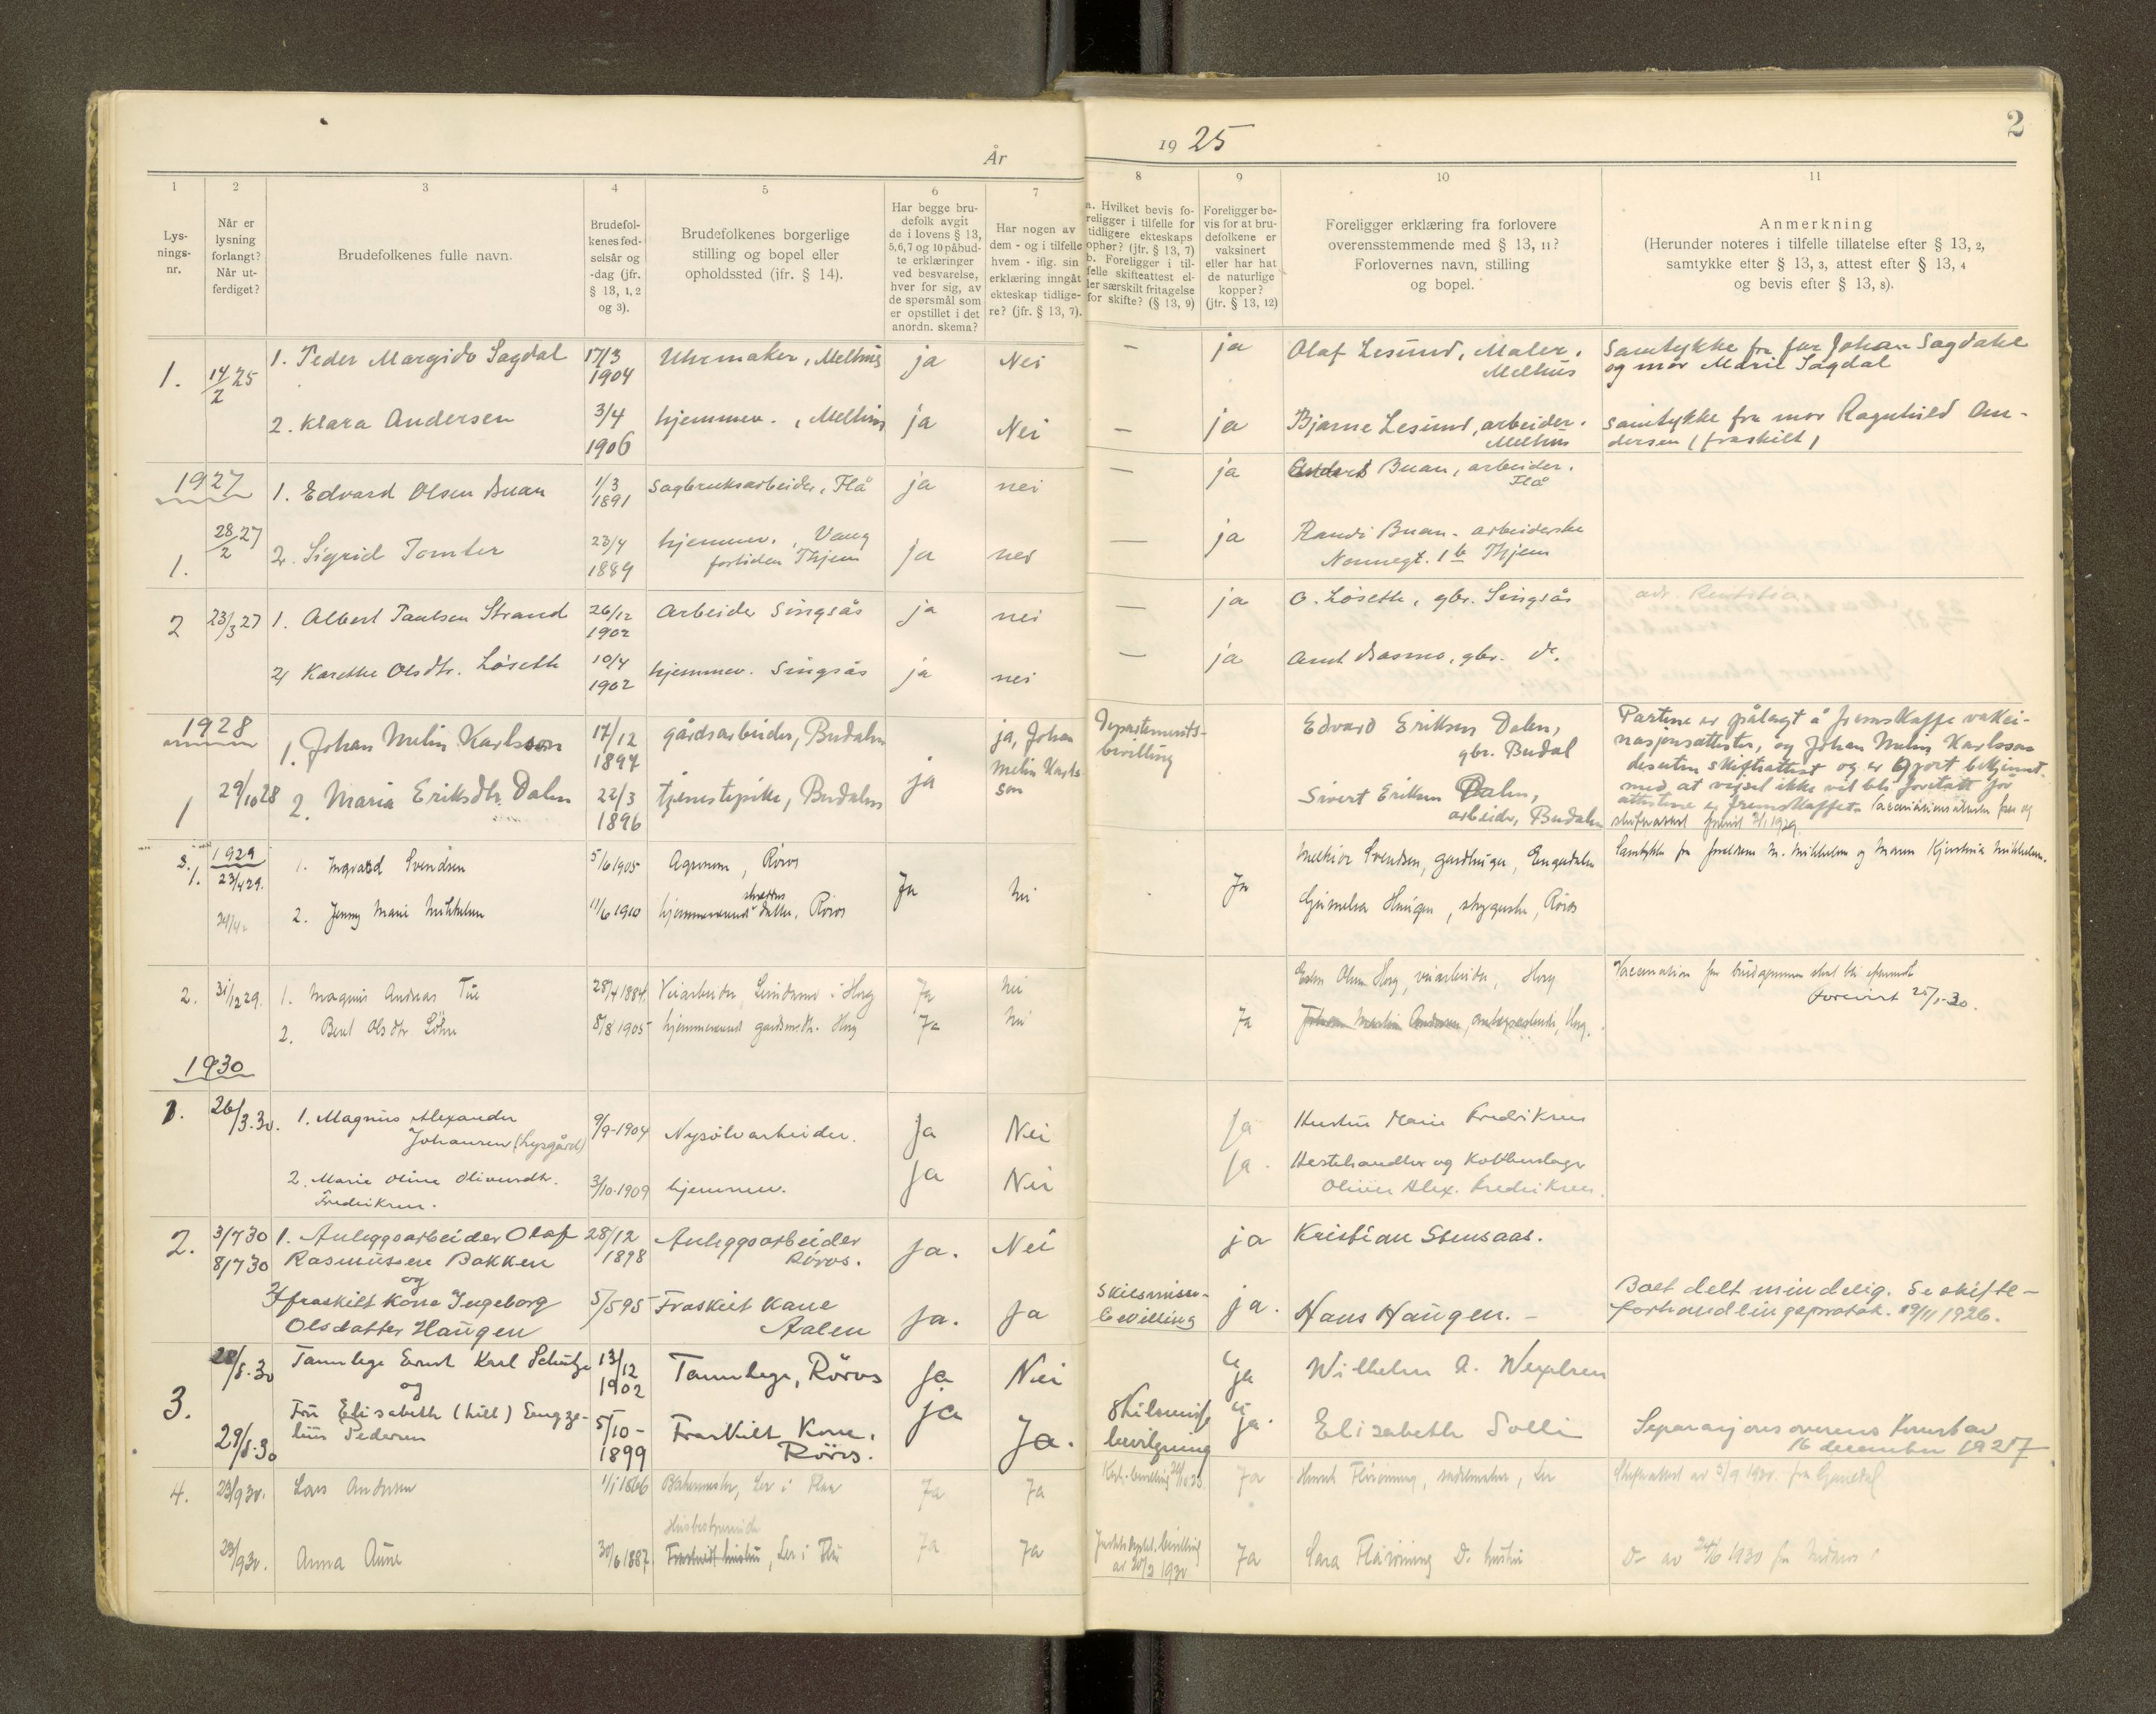 År
19 25
2
1
2
3
4
5
6
7
8
9
10
11
Lys-
nings-
nr.
Når er
lysning
forlangt?
Når ut-
ferdiget?
Brudefolkenes fulle navn.
Brudefol-
kenes fød-
selsår og
-dag (jfr.
§ 13, 1, 2
og 3).
Brudefolkenes borgerlige
stilling og bopel eller
opholdssted (ifr. § 14).
Har begge bru-
defolk avgit
de i lovens § 13,
5,6,7 og 10 påbud-
te erklæringer
ved besvarelse,
hver for sig, av
de spørsmål som
er opstillet i det
anordn. skema?
Har nogen av
dem - og i tilfelle
hvem - iflg. sin
erklæring inngåt
ekteskap tidlige-
re? (jfr. § 13, 7).
a. Hvilket bevis fo-
religger i tilfelle for
tidligere ekteskaps
ophør? (jfr. § 13, 7)
b. Foreligger i til-
felle skifteattest el-
ler særskilt fritagelse
for skifte? (§ 13, 9)
Foreligger be-
vis for at bru-
defolkene er
vaksinert
eller har hat
de naturlige
kopper?
(jfr. § 13, 12)
Foreligger erklæring fra forlovere
overensstemmende med § 13, 11?
Forlovernes navn, stilling
og bopel.
Anmerkning
(Herunder noteres i tilfelle tillatelse efter § 13, 2,
samtykke efter § 13, 3, attest efter § 13, 4
og bevis efter § 13, 8).
1. 14/2 25 1. Peder Margido Sagdal 17/3 1904 Uhrmaker, Melhus ja Nei — ja Olaf Lesund, Maler. Melhus Samtykke fra far Johan Sagdahl
og mor Marie Sagdal
2. Klara Andersen 3/4 1906 hjemmev., Melhus ja Nei — ja Bjarne Lesund, arbeider. Melhus samtykke fra mor Ragnhild An-
dersen (fraskilt)
1927
1. Edvard Olsen Buan 1/3 1891 Sagbruksarbeider, Flå ja nei — ja Buan, arbeider. Flå
1. 28/2 27 2. Sigrid Tomter 23/4 1889 hjemmev., Vang
fortiden Thjem ja nei — ja Randi Buan - arbeiderske
Nonnegt. 1 b Thjem
2 23/3 27 1. Albert Paulsen Strand 26/12 1902 Arbeider Singsås ja nei — ja O. Løseth, gbr. Singsås
2. Karethe Olsdtr. Løseth 10/4 1902 hjemmev. Singsås ja nei — ja Arnt Basmo, gbr. do.
1928
1. Johan Melin Karlsson 17/12 1897 gårdsarbeider, Budalen ja, Johan
Melin Karls-
son Departements-
bevilling Edvard Eriksen Dalen,
gbr. Budal
1 29/10 28 2. Maria Eriksdtr. Dalen 22/3 1896 tjenestepike, Budalen ja Sivert Eriksen Dalen,
arbeider, Budalen
Partene er pålagt å fremskaffe vaksi-
nasjonsattester, og Johan Melin Karlsson
desuten skifteattest og er gjort bekjennt
med at vigsel ikke vil bli foretatt før
attestene er fremskaffet.
1929
1. 23/4 29. 1. Ingvald Svendsen 5/6 1905 Agronom, Röros Ja Nei Ja Melkior Svendsen, gardbruger, Engerdalen Samtykke fra foreldrene M. Mikkelsen og Maren Kjerstina Mikkelsen.
24/4. 2. Jenny Marie Mikkelsen 11/6 1910 hjemmeværende datter, Röros Haugen, Röros
2. 31/12 29. 1. Magnus Andreas 28/4 1884 Veiarbeider, i Horg Ja Nei Olsen Horg, veiarbeider, Horg Vaccination for brudgommen skal bli eftersendt
forevist 25/1-30.
2. Berit Olsdtr 8/8 1905 hjemmeværende gardmdtr. Horg Ja Nei Ja Johan Martin Andersen, Horg
1930
1. 26/3.30. 1. Magnus Alexander
Johansen (Lysgård) 9/9-1904 Nysölvarbeider. Ja Nei Ja Hustru Marie Fredriksen
2. Marie Oline Oliversdtr.
Fredriksen. 3/10.1909 hjemmev. Ja Nei Ja. Hestehandler og
Oliver Alex. Fredriksen.
2. 3/7 30
8/7 30 1. Anleggsarbeider Olaf
Rasmussen Bakken 28/12 1898 Anleggsarbeider
Röros. ja. Nei ja Kristian Stensaas.
og
2. fraskilt kone Ingeborg
Olsdatter Haugen 5/5 95 Fraskilt kone
Aalen ja. Ja Skilsmisse-
bevilling ja. Hans Haugen. - Boet delt mindelig. Se skifte-
forhandlingsprotok. 19/11 1926.
3. 28/8.30 Tannlege Ernst Karl Schulze 13/12 1902 Tannlege, Röros Ja Nei ja Wilhelm A. Wexelsen
og
29/8.30 Fru Elisabeth (Lill) Engze-
lius Pedersen 5/10-1899 Fraskilt Kone,
Röros. ja Ja. Skilsmisse
bevilgning ja. Elisabeth Solli Separasjonsoverenskomst av
16 december 1927
4. 23/9 30. Lars Andersen 1/1 1866 Banemester, Ler i Flaa Ja Ja Ja Henrik Flåröning, sadelmaker, Ler Skifteattest av 5/9 1930. fra Gauldal
23/9 30. Anna Aune 30/6 1887 Husbestyrerinde
Fraskilt hustru, Ler i Flå Ja Ja bevilling
av 20/2 1930 Ja Sara Flåröning D. hustru Do av 24/6 1930 fra Nidaros